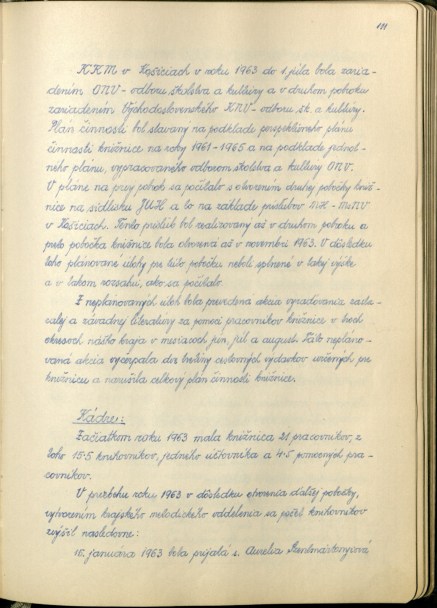 111
KKM v Košiciach v roku 1963 do 1. júla bola zaria-
dením ONV - odboru školstva a kultúry a v druhom polroku
zariadením Východoslovenského KNV - odboru šk. a kultúry.
Plán činnosti bol stavaný na podklade perspektívneho plánu
činnosti knižnice na roky 1961 - 1965 a na podklade jednot-
ného plánu, vypracovaného odborom školstva a kultúry ONV.
V pláne na prvý polrok sa počítalo s otvorením druhej pobočky kniž-
nice na sídlisku a to na základe prísľubov - MsNV
v Košiciach. Tento prísľub bol realizovaný až v druhom polroku a
preto pobočka knižnice bola otvorená až v novembri 1963. V dôsledku
toho plánované úlohy pre túto pobočku neboli splnené v takej výške
a v takom rozsahu, ako sa počítalo.
Z neplánovaných úloh bola prevedená akcia vyraďovania zasta-
ralej a závadnej literatúry za pomoci pracovníkov knižnice v troch
okresoch nášho kraja v mesiacoch jún, júl a august. Táto nepláno-
vaná akcia vyčerpala dve tretiny cestovných výdavkov určených pre
knižnicu a narušila celkový plán činnosti knižnice.
Kádre:
Začiatkom roku 1963 mala knižnica 21 pracovníkov, z
toho 15.5 knihovníkov, jedného účtovníka a 4.5 pomocných pra-
covníkov.
V priebehu roku 1963 v dôsledku otvorenia ďalšej pobočky,
vytvorením krajského metodického oddelenia sa počet knihovníkov
zvýšil nasledovne:
15. januára 1963 bola prijatá s. Aurelia